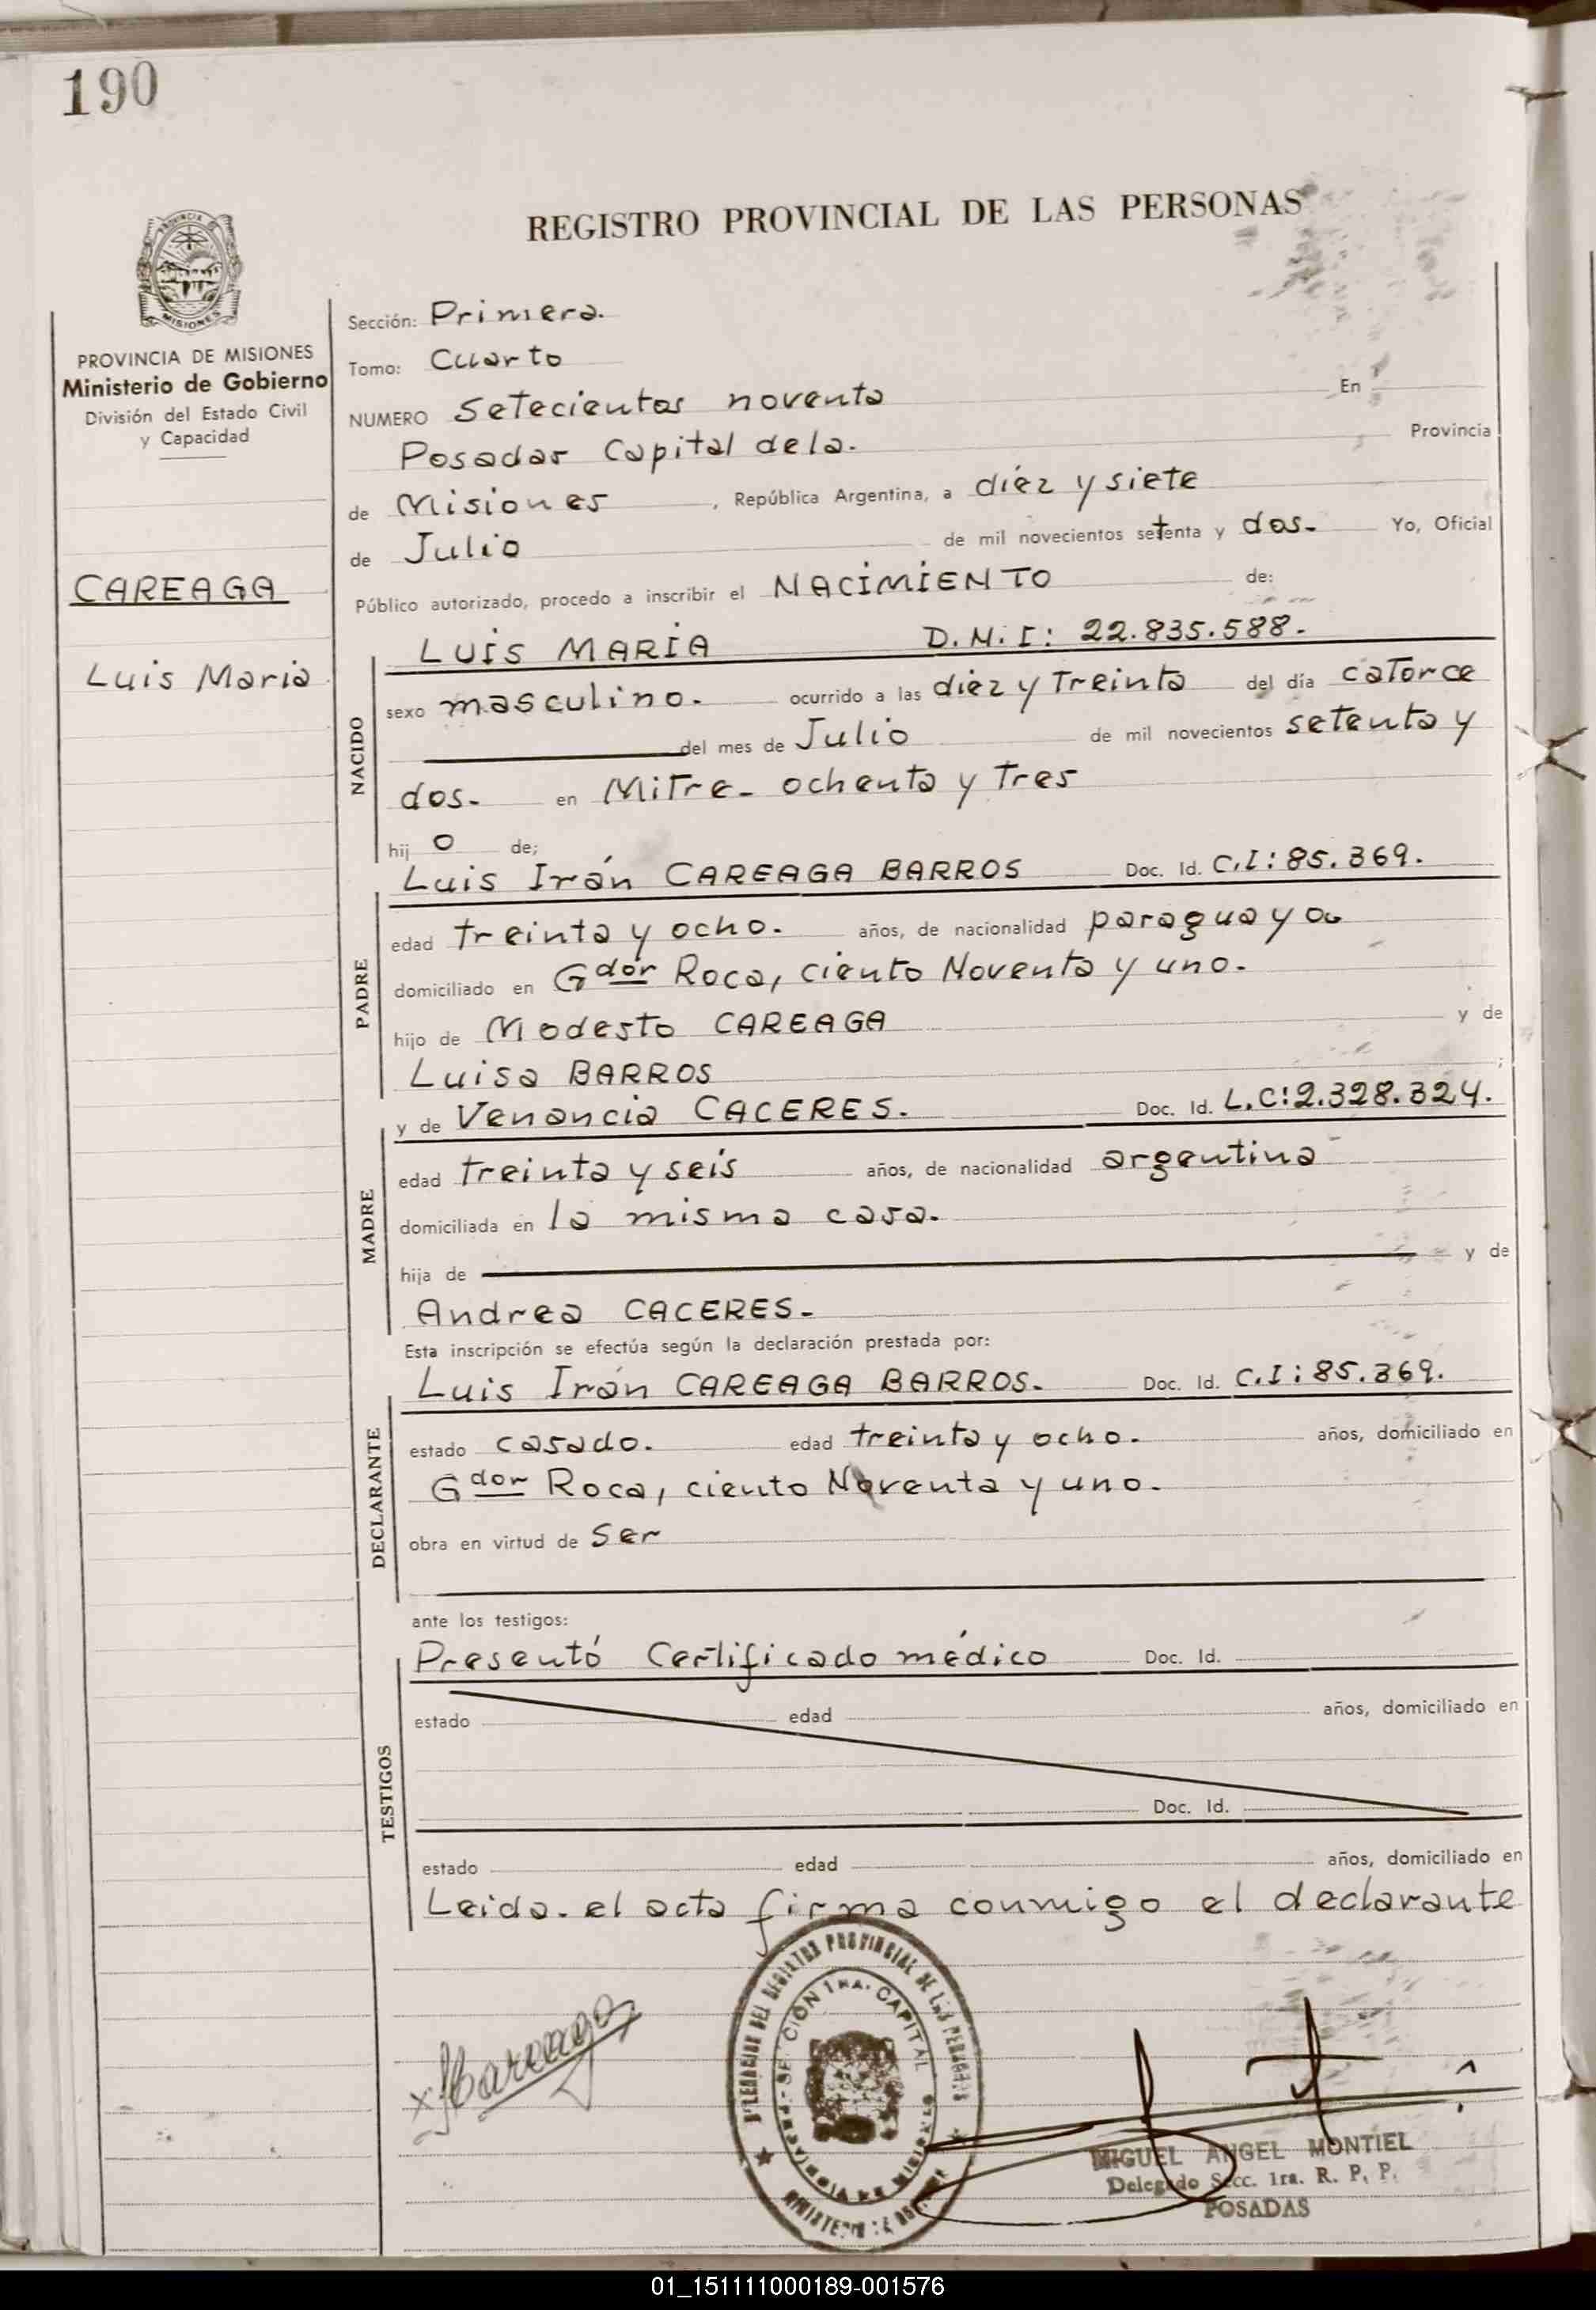 190
REGISTRO PROVINCIAL DE LAS PERSONAS
PROVINCIA DE MISIONES
Ministerio de Gobierno
División del Estado Civil
y Capacidad
CAREAGA
Luis Maria
Sección: Primera.
Tomo: Cuarto
NUMERO Setecientos noventa En
Posadas Capital de la. Provincia
de Misiones, República Argentina, a diéz y siete
de Julio de mil novecientos setenta y dos. Yo, Oficial
Público autorizado, procedo a inscribir el NACIMIENTO de:
NACIDO
LUIS MARIA D.N.I: 22.835.588.
sexo masculino. ocurrido a las diez y treinta del día catorce
del mes de Julio de mil novecientos setenta y
dos. en Mitre - ochenta y tres
hij o de;
PADRE
Luis Irán CAREAGA BARROS Doc. Id. C.I: 85.369.
edad treinta y ocho. años, de nacionalidad paraguaya
domiciliado en Gdor Roca, ciento Noventa y uno.
hijo de Modesto CAREAGA y de
Luisa BARROS ;
MADRE
y de Venancia CACERES. Doc. Id. L.C: 2.328.324.
edad treinta y seis años, de nacionalidad argentina
domiciliada en la misma casa.
hija de y de
Andrea CACERES.
Esta inscripción se efectúa según la declaración prestada por:
DECLARANTE
Luis Irán CAREAGA BARROS. Doc. Id. C.I: 85.369.
estado casado. edad treinta y ocho. años, domiciliado en
Gdor Roca, ciento Noventa y uno.
obra en virtud de Ser
ante los testigos:
TESTIGOS
Presentó Certificado médico Doc. Id.
estado edad años, domiciliado en
Doc. Id.
estado edad años, domiciliado en
Leida. el acta firma conmigo el declarante
MIGUEL ANGEL MONTIEL
Delegado Secc. 1ra. R. P. P.
POSADAS
01_151111000189-001576